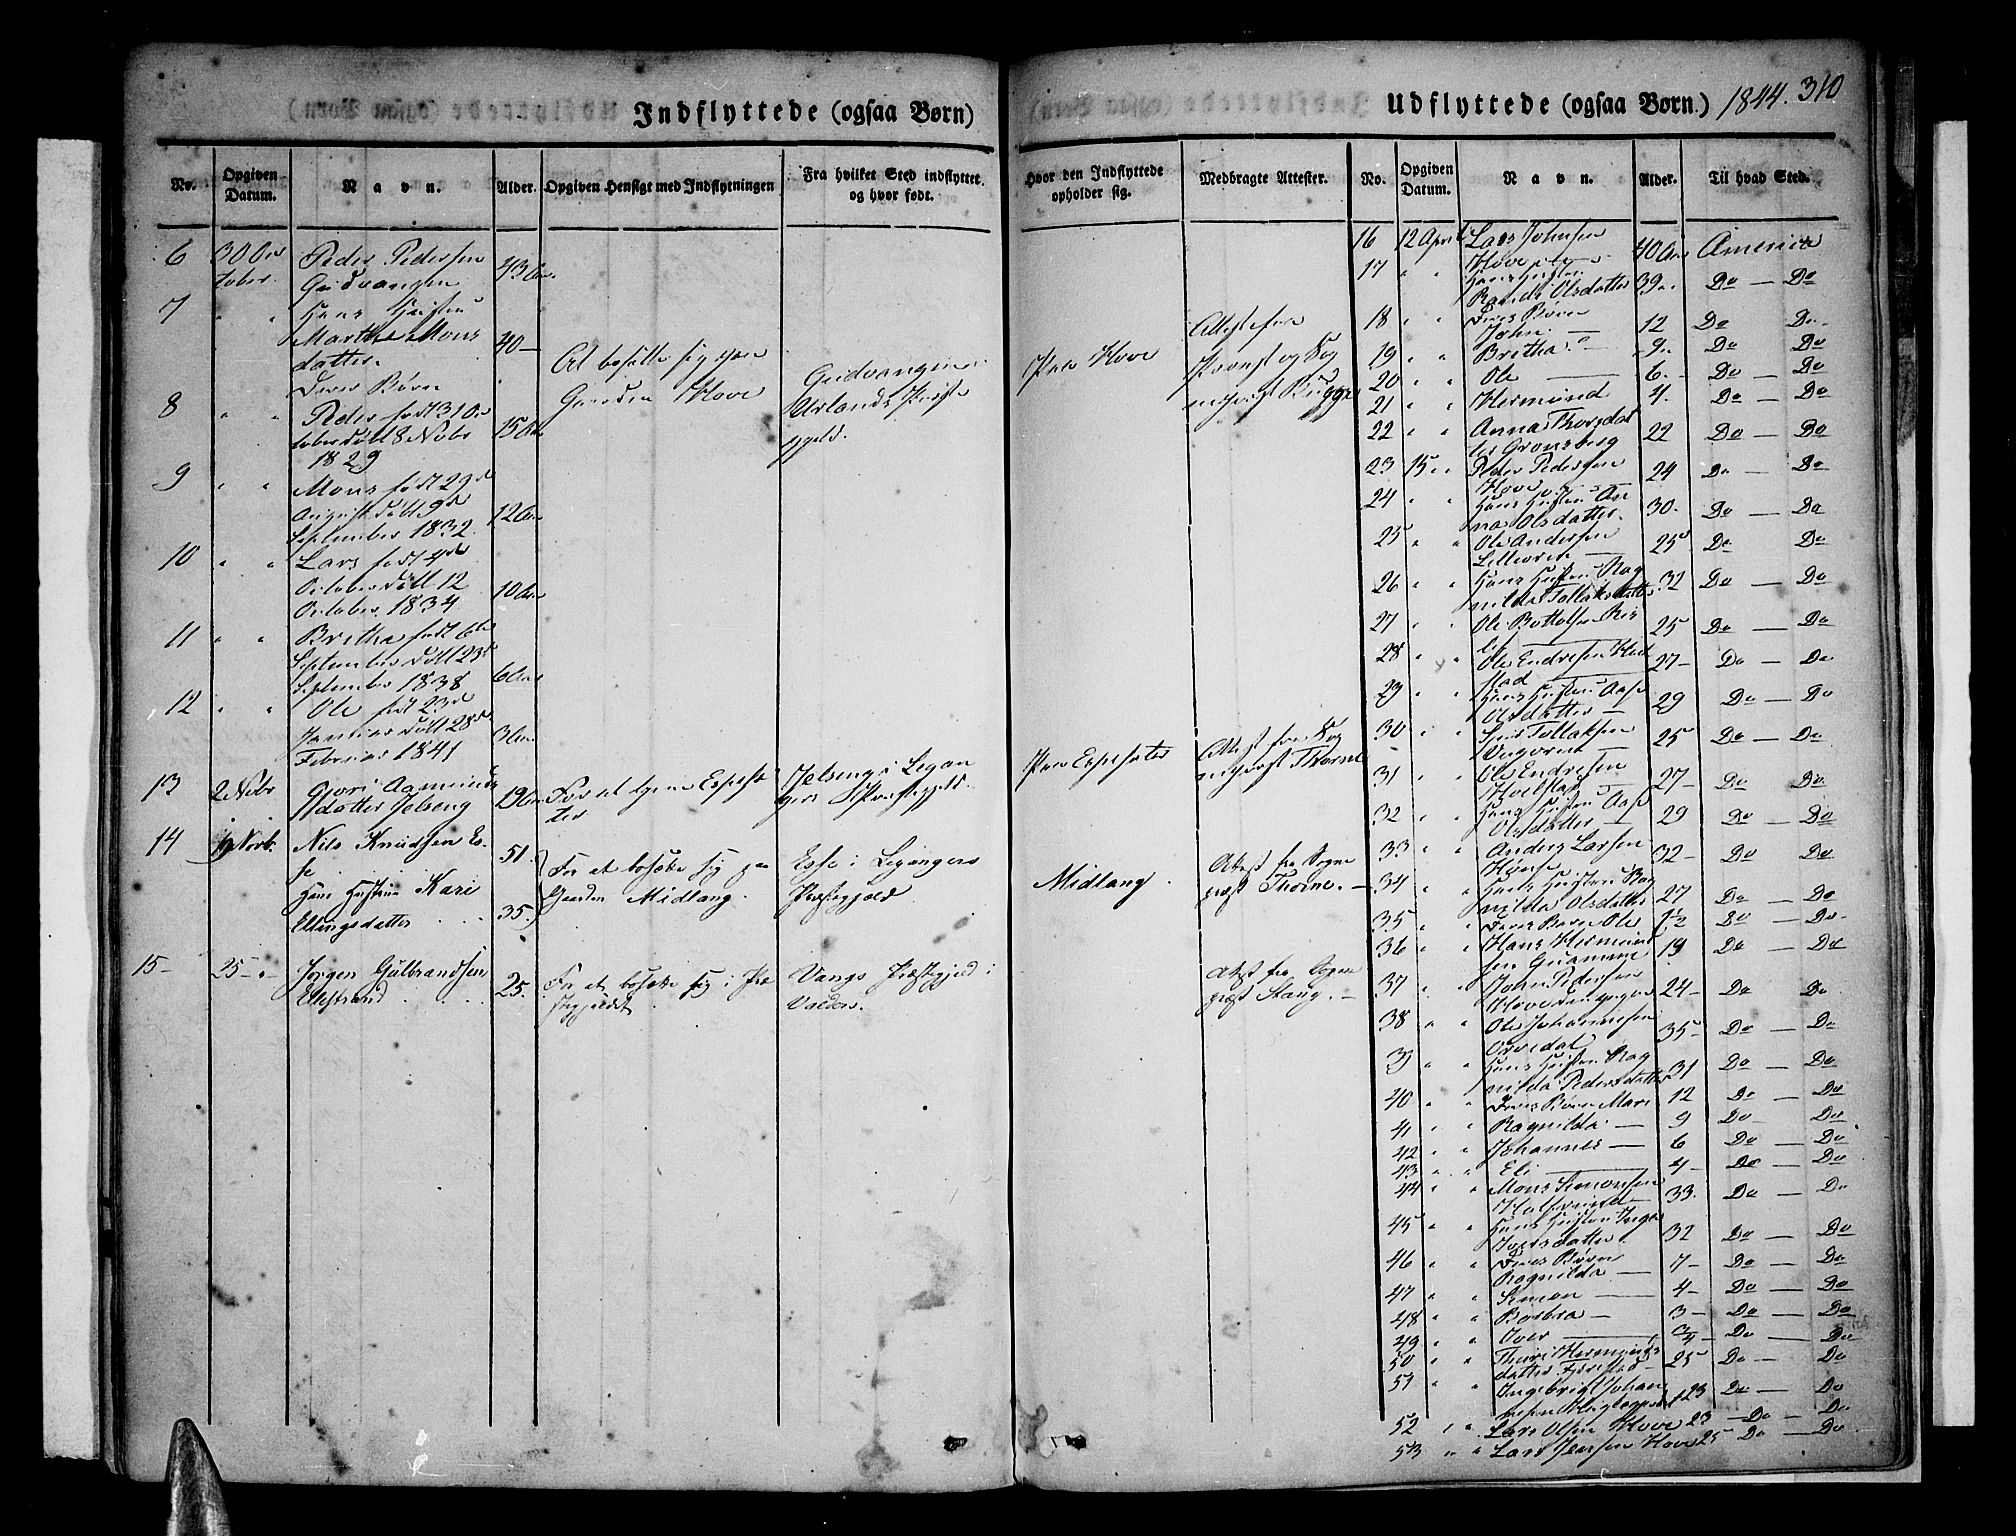 Indflyttede (ogsaa Børn)
No.
Opgiven Datum.
Navn.
Alder.
Opgiven Hensigt med Indflytningen
Fra hvilket Sted indflyttet og hvor født.
6 30 Oc Peder Pedersen
tober. Gudvangen 43 Aar
7 " " Hans Hustru
Marthe Mons
datter 40 —
Deres Børn
8 " " Peder født 31 Oc
tober døbt 8 Nobr 15 Aar
1829
At bosætte sig paa
Gaarden Hove
Gudvangen i
Urlands Præste
gjeld.
9 " " Mons født 29de
August døbt 9de 12 Aar
September 1832
10 " " Lars født 4de
October døbt 12 10 Aar
October 1834
11 " " Britha født 6te
September døbt 23de
September 1838 6 Aar
12 " " Ole født 23de
Januar døbt 28de 3 Aar
Februar 1841
13 2 Nobr Gjøri Aamunds
datter 19 Aar For at tjene Espese
ter i Legan
gers Præstegjeld.
14 19 Novb. Nils Knudsen Es-
se 51. For at bosætte sig paa Esse i Legangers
Hans Hustrue Kari Gaarden Midlang. Præstegjeld
Ellingsdatter 35.
15 — 25 — " Jørgen Gulbrandsen 25. For at bosætte sig i Præ Vangs Præstegjeld i
Ellestrand stegjeldet Valders.
Udflyttede (ogsaa Børn.) 1844. 310
Hvor den Indflyttede opholder sig.
Medbragte Attester.
No.
Opgiven Datum.
Navn.
Alder.
Til hvad Sted.
Paa Hove
Attest fra
Provst og Sog
nepræst Brigge
Paa Espeseter
Attest fra Sog
nepræst Thorne
Midlang.
Attest fra Sogne
præst Thorne. —
Attest fra Sogne
præst Stang. —
16 12 April Lars Johnsen
Hove 40 Aar America
17 " " Hans Hustru
Randi Olsdatter 39 " Do — Do
18 " " Deres Børn
John — 12 Do Do
19 " " Britha — 9 " Do Do
20 " " Ole — 6. Do — Do
21 " " Hermund 4. Do — Do
22 " " Anna Thorsdat
ter Grønsberg 22 Do — Do
23 15 " Peder Pedersen
Hove 24 Do — Do
24 " " Hans Hustru An
na Olsdatter. 30. Do — Do
25 " " Ole Andersen
25 Do Do
26 " " Hans Hustru Rag
nilda Tollaksdatter 32 Do — Do
27 " " Ole Bottolfsen
25 Do — Do
28 " " Ole Endresen
27 — Do — Do
29 " " Hans Hustru Aase
Olsdatter — 29 Do — Do
30 " " Tollaksen
25 Do — Do
31 " " Ole Endresen
27 — Do Do
32 " " Hans Hustru Aase
Olsdatter — 29 Do — Do
33 " " Anders Larsen
32 — Do Do
34 " " Hans Hustru Rag
nilda Olsdatter 27 Do — Do
35 " " Deres Barn Ole 1½ Do — Do
36 " " Hans Hermund
sen 19 Do — Do
37 " " John Pedersen
Hove 24 — Do Do
38 " " Ole Johannesen
Orredal 35 — Do — Do
39 " " Hans Hustru Rag
nilda Pedersdatter 31 Do — Do
40 " " Deres Børn Mari 12 Do — Do
41 " " Ragnilda — 9 Do Do
42 " " Johannes — 6 Do — Do
43 " " Eli — 4 — Do — Do
44 " " Mons Simonsen
33. Do — Do
45 " " Hans Hustru Inga
Iversdatter 32 Do — Do
46 " " Deres Børn
Ragnilda — 7 — Do — Do
47 " " Simon — 4 — Do — Do
48 " " Barbra — 3 — Do — Do
49 " " Iver — ¾ — Do — Do
50 " " Thuri Hermunds
datter 25 Do — Do
51 " " Ingebrigt Johan
nesen 23 Do — Do
52 " " Lars Olsen Hove 23 — Do — Do
53 " " Lars Jensen Hove 25 Do — Do